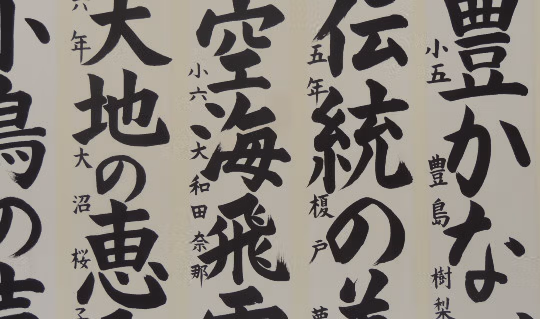 豊かな
小五 豊島 樹梨
伝統の美
五年 榎戸 夢
空海飛
小六 大和田 奈那
大地の恵
六年 大沼 桜子
小鳥の